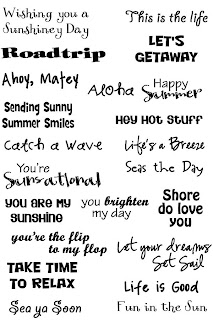 Wishing you a
Sunshiney Day
This is the life
Roadtrip
LET'S
GETAWAY
Ahoy, Matey
Aloha
Happy
Summer
Sending Sunny
Summer Smiles
Hey Hot Stuff
Catch a Wave
Life's a Breeze
You're
Sunsational
Seas the Day
you are my
sunshine
you brighten
my day
Shore
do love
you
you're the flip
to my flop
Let your dreams
Set Sail
TAKE TIME
TO RELAX
Life is Good
Sea ya Soon
Fun in the Sun